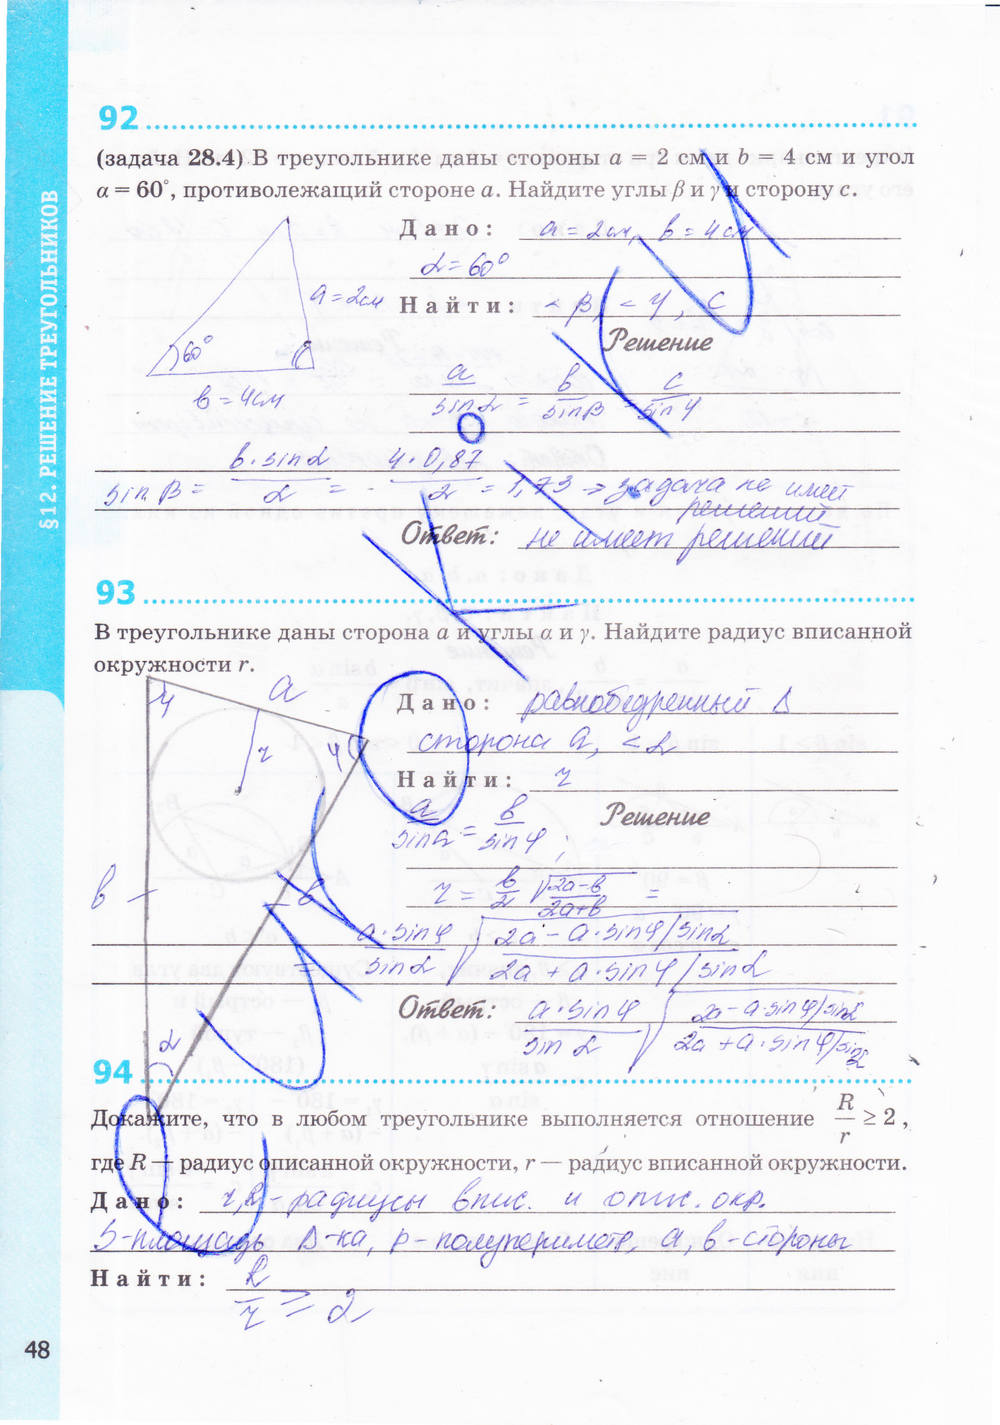 §12. РЕШЕНИЕ ТРЕУГОЛЬНИКОВ
92
(задача 28.4) В треугольнике даны стороны a = 2 см и b = 4 см и угол
α = 60°, противолежащий стороне a. Найдите углы β и γ и сторону c.
Дано: a = 2см, b = 4см
α = 60°
a = 2см
Найти: < β, < γ, c
60°
Решение
b = 4см
a/sin α = b/sin β = c/sin γ
sin β = b·sin α/2 = 4·0,87/2 = 1,73 ⇒ задача не имеет
решений
Ответ: не имеет решений
93
В треугольнике даны сторона a и углы α и γ. Найдите радиус вписанной
окружности r.
γ a
r γ
Дано: равнобедренный Δ
сторона a, < α
Найти: r
a/sin α = b/sin γ,
Решение
b b
r = b/2 √(2a-b/2a+b) =
= a·sin γ/sin α √(2a - a·sin γ/sin α/2a + a·sin γ/sin α)
Ответ: a·sin γ/sin α √(2a - a·sin γ/sin α/2a + a·sin γ/sin α)
α
94
Докажите, что в любом треугольнике выполняется отношение R/r ≥ 2,
где R — радиус описанной окружности, r — радиус вписанной окружности.
Дано: r, R - радиусы впис. и опис. окр.
S-площадь Δ-ка, p-полупериметр, a, b-стороны
Найти: R/r ≥ 2
48